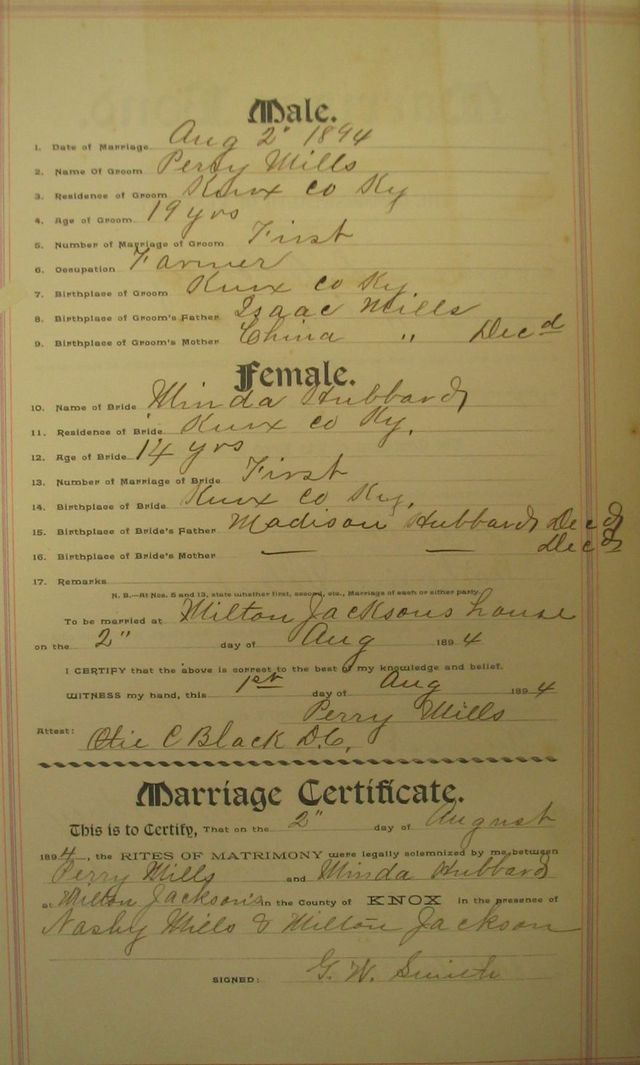 Male.
1. Date of Marriage Aug 2" 1894
2. Name Of Groom Perry Mills
3. Residence of Groom Knox co Ky
4. Age of Groom 19 yrs
5. Number of Marriage of Groom First
6. Occupation Farmer
7. Birthplace of Groom Knox co Ky
8. Birthplace of Groom's Father Isaac Mills
9. Birthplace of Groom's Mother China " Decd
Female.
10. Name of Bride Minda Hubbard
11. Residence of Bride Knox co Ky,
12. Age of Bride 14 yrs
13. Number of Marriage of Bride First
14. Birthplace of Bride Knox co Ky,
15. Birthplace of Bride's Father Madison Hubbard Decd
16. Birthplace of Bride's Mother — — Decd
17. Remarks
N. B.—At Nos. 5 and 13, state whether first, second, etc., Marriage of each or either party
To be married at Milton Jacksons house
on the 2" day of Aug 1894
I CERTIFY that the above is correct to the best of my knowledge and belief.
WITNESS my hand, this 1st day of Aug 1894
Perry Mills
Attest: Otie C Black D.C,
Marriage Certificate.
This is to Certify, That on the 2" day of August
1894, the RITES OF MATRIMONY were legally solemnized by me between
Perry Mills and Minda Hubbard
at Milton Jackson's in the County of KNOX in the presence of
Nasby Mills & Milton Jackson
SIGNED: G. W. Smith